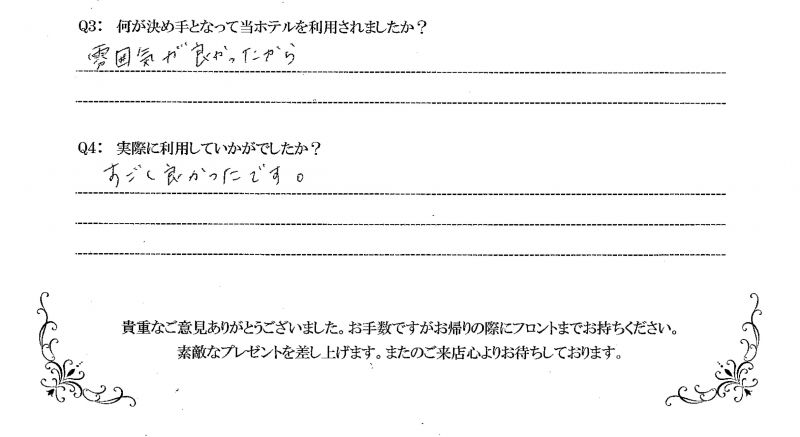 Q3: 何が決め手となって当ホテルを利用されましたか?
雰囲気が良かったから
Q4: 実際に利用していかがでしたか?
すごく良かったです。
貴重なご意見ありがとうございました。お手数ですがお帰りの際にフロントまでお持ちください。
素敵なプレゼントを差し上げます。またのご来店心よりお待ちしております。